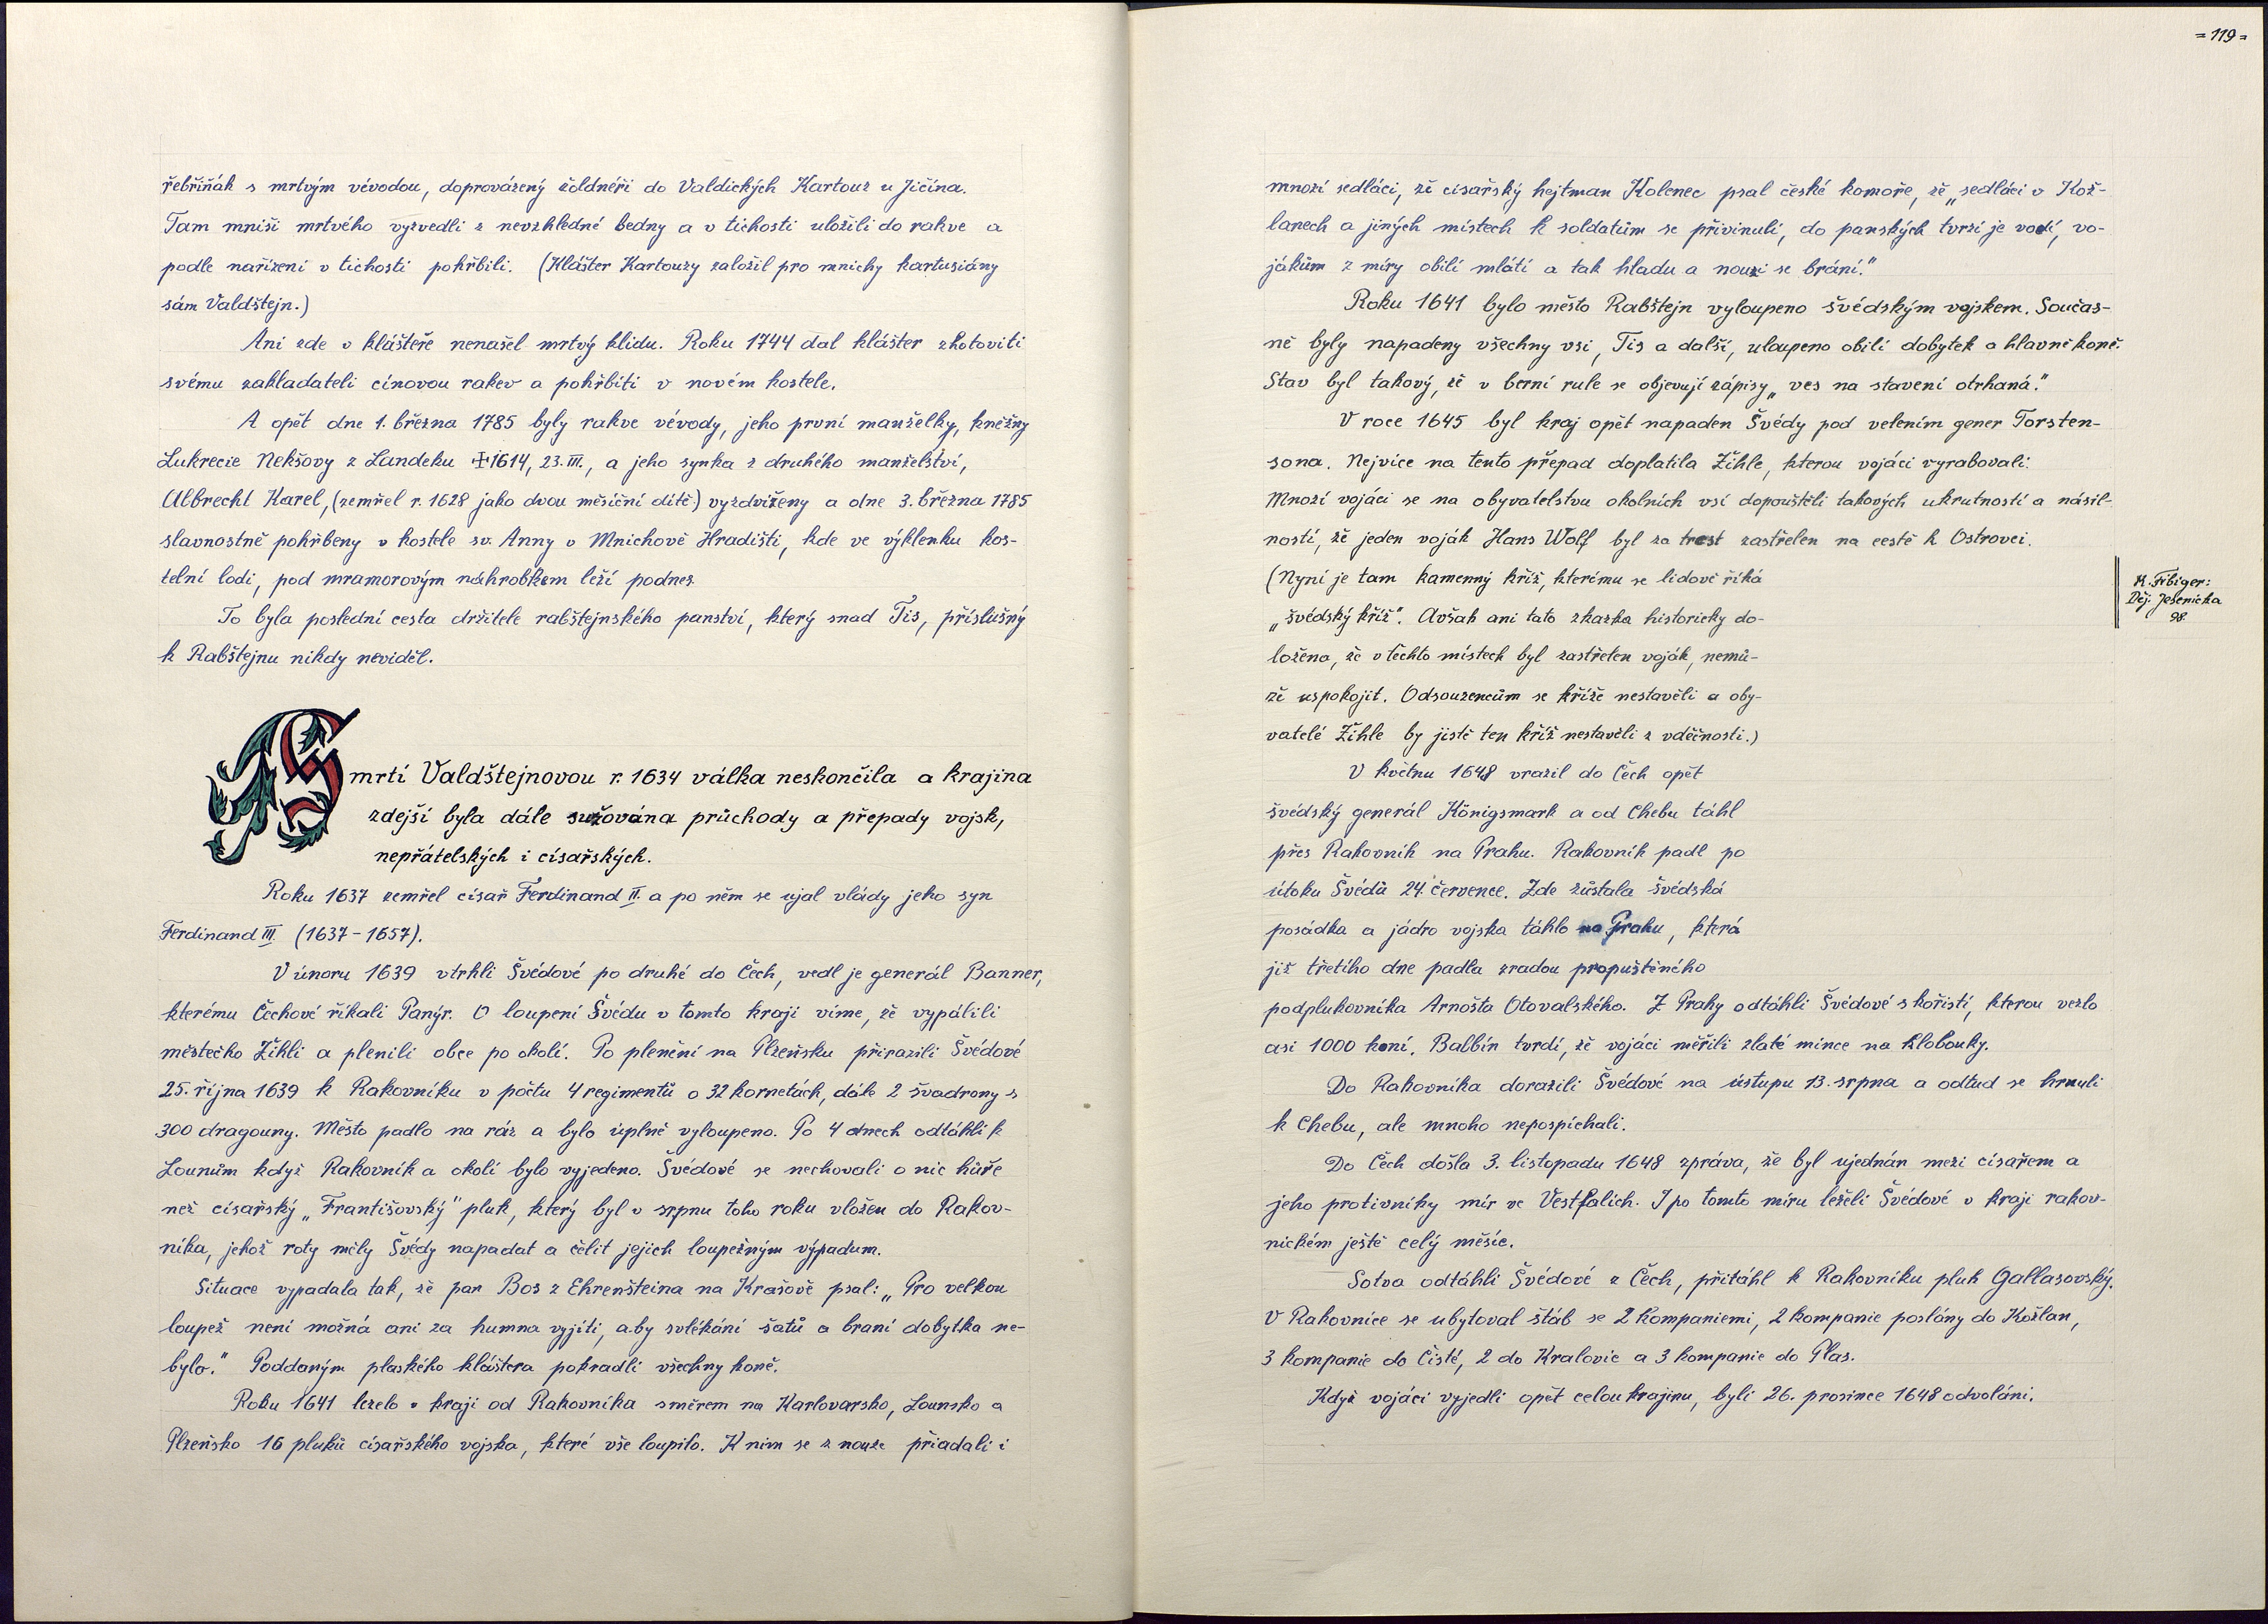 řebřiňák s mrtvým vévodou, doprovázený žoldnéři do Valdických Kartouz u Jičína.
Tam mniši mrtvého vyzvedli z nevzhledné bedny a v tichosti uložili do rakve a
podle nařízení v tichosti pohřbili. (Klášter Kartouzy založil pro mnichy kartusiány
sám Valdštejn.)
Ani zde v klášteře nenašel mrtvý klidu. Roku 1744 dal klášter zhotoviti
svému zakladateli cínovou rakev a pohřbíti v novém kostele.
A opět dne 1. března 1785 byly rakve vévody, jeho první manželky, kněžny
Lukrecie Nekšovy z Landeku ✠1614, 23. III., a jeho synka z druhého manželství,
Albrecht Karel, (zemřel r. 1628 jako dvou měsíční dítě) vyzdviženy a dne 3. března 1785
slavnostně pohřbeny v kostele sv. Anny v Mnichově Hradišti, kde ve výklenku kos-
telní lodi, pod mramorovým náhrobkem leží podnes.
To byla poslední cesta držitele rabštejnského panství, který snad Tis, příslušný
k Rabštejnu nikdy neviděl.
Smrtí Valdštejnovou r. 1634 válka neskončila a krajina
zdejší byla dále sužována průchody a přepady vojsk,
nepřátelských i císařských.
Roku 1637 zemřel císař Ferdinand II. a po něm se ujal vlády jeho syn
Ferdinand III. (1637-1657).
V únoru 1639 vtrhli Švédové po druhé do Čech, vedl je generál Banner,
kterému Čechové říkali Panýr. O loupení Švédu v tomto kraji víme, že vypálili
městečko Žihli a plenili obce po okolí. Po plenění na Plzeňsku přirazili Švédové
25. října 1639 k Rakovníku v počtu 4 regimentů o 32 kornetách, dále 2 švadrony s
300 dragouny. Město padlo na ráz a bylo úplně vyloupeno. Po 4 dnech odtáhli k
Lounům když Rakovník a okolí bylo vyjedeno. Švédové se nechovali o nic hůře
než císařský „Františovský" pluk, který byl v srpnu toho roku vložen do Rakov-
níka, jehož roty měly Švédy napadat a čelit jejich loupežným výpadum.
Situace vypadala tak, že pan Bos z Ehrenšteina na Krašově psal: „Pro velkou
loupež není možná ani za humna vyjíti, aby svlékání šatů a braní dobytka ne-
bylo." Poddaným plaského kláštera pokradli všechny koně.
Roku 1641 leželo v kraji od Rakovníka směrem na Karlovarsko, Lounsko a
Plzeňsko 16 pluků císařského vojska, které vše loupilo. K nim se z nouze přiadali i
=119=
mnozí sedláci, že císařský hejtman Kolenec psal české komoře, že „sedláci v Kož-
lanech a jiných místech k soldatům se přivinuli, do panských tvrzí je vodí, vo-
jákům z míry obilí mlátí a tak hladu a nouzi se brání."
Roku 1641 bylo město Rabštejn vyloupeno švédským vojskem. Součas-
ně byly napadeny všechny vsi, Tis a další, uloupeno obilí dobytek a hlavně koně.
Stav byl takový, že v berní rule se objevují zápisy „ves na stavení otrhaná."
V roce 1645 byl kraj opět napaden Švédy pod velením gener Torsten-
sona. Nejvíce na tento přepad doplatila Žihle, kterou vojáci vyrabovali.
Mnozí vojáci se na obyvatelstvu okolních vsí dopouštěli takových ukrutností a násil-
ností, že jeden voják Hans Wolf byl za trest zastřelen na cestě k Ostrovci.
(Nyní je tam kamenný kříž, kterému se lidově říká
„švédský kříž". Avšak ani tato zkazka historicky do-
ložena, že v těchto místech byl zastřelen voják, nemů-
že uspokojit. Odsouzencům se kříže nestavěli a oby-
vatelé Žihle by jistě ten kříž nestavěli z vděčnosti.)
K. Fibiger:
Děj. Jesenicka
98.
V květnu 1648 vrazil do Čech opět
švédský generál Königsmark a od Chebu táhl
přes Rakovník na Prahu. Rakovník padl po
útoku Švédů 24. července. Zde zůstala švédská
posádka a jádro vojska táhlo na Prahu, která
již třetího dne padla zradou propuštěného
podplukovníka Arnošta Otovalského. Z Prahy odtáhli Švédové s kořistí, kterou vezlo
asi 1000 koní. Balbín tvrdí, že vojáci měřili zlaté mince na klobouky.
Do Rakovníka dorazili Švédové na ústupu 13. srpna a odtud se hrnuli
k Chebu, ale mnoho nepospíchali.
Do Čech došla 3. listopadu 1648 zpráva, že byl ujednán mezi císařem a
jeho protivníky mír ve Vestfalích. I po tomto míru leželi Švédové v kraji rakov-
nickém ještě celý měsíc.
Sotva odtáhli Švédové z Čech, přitáhl k Rakovníku pluk Gallasovský.
V Rakovníce se ubytoval štáb se 2 kompaniemi, 2 kompanie poslány do Kožlan,
3 kompanie do Čisté, 2 do Kralovic a 3 kompanie do Plas.
Když vojáci vyjedli opět celou krajinu, byli 26. prosince 1648 odvoláni.